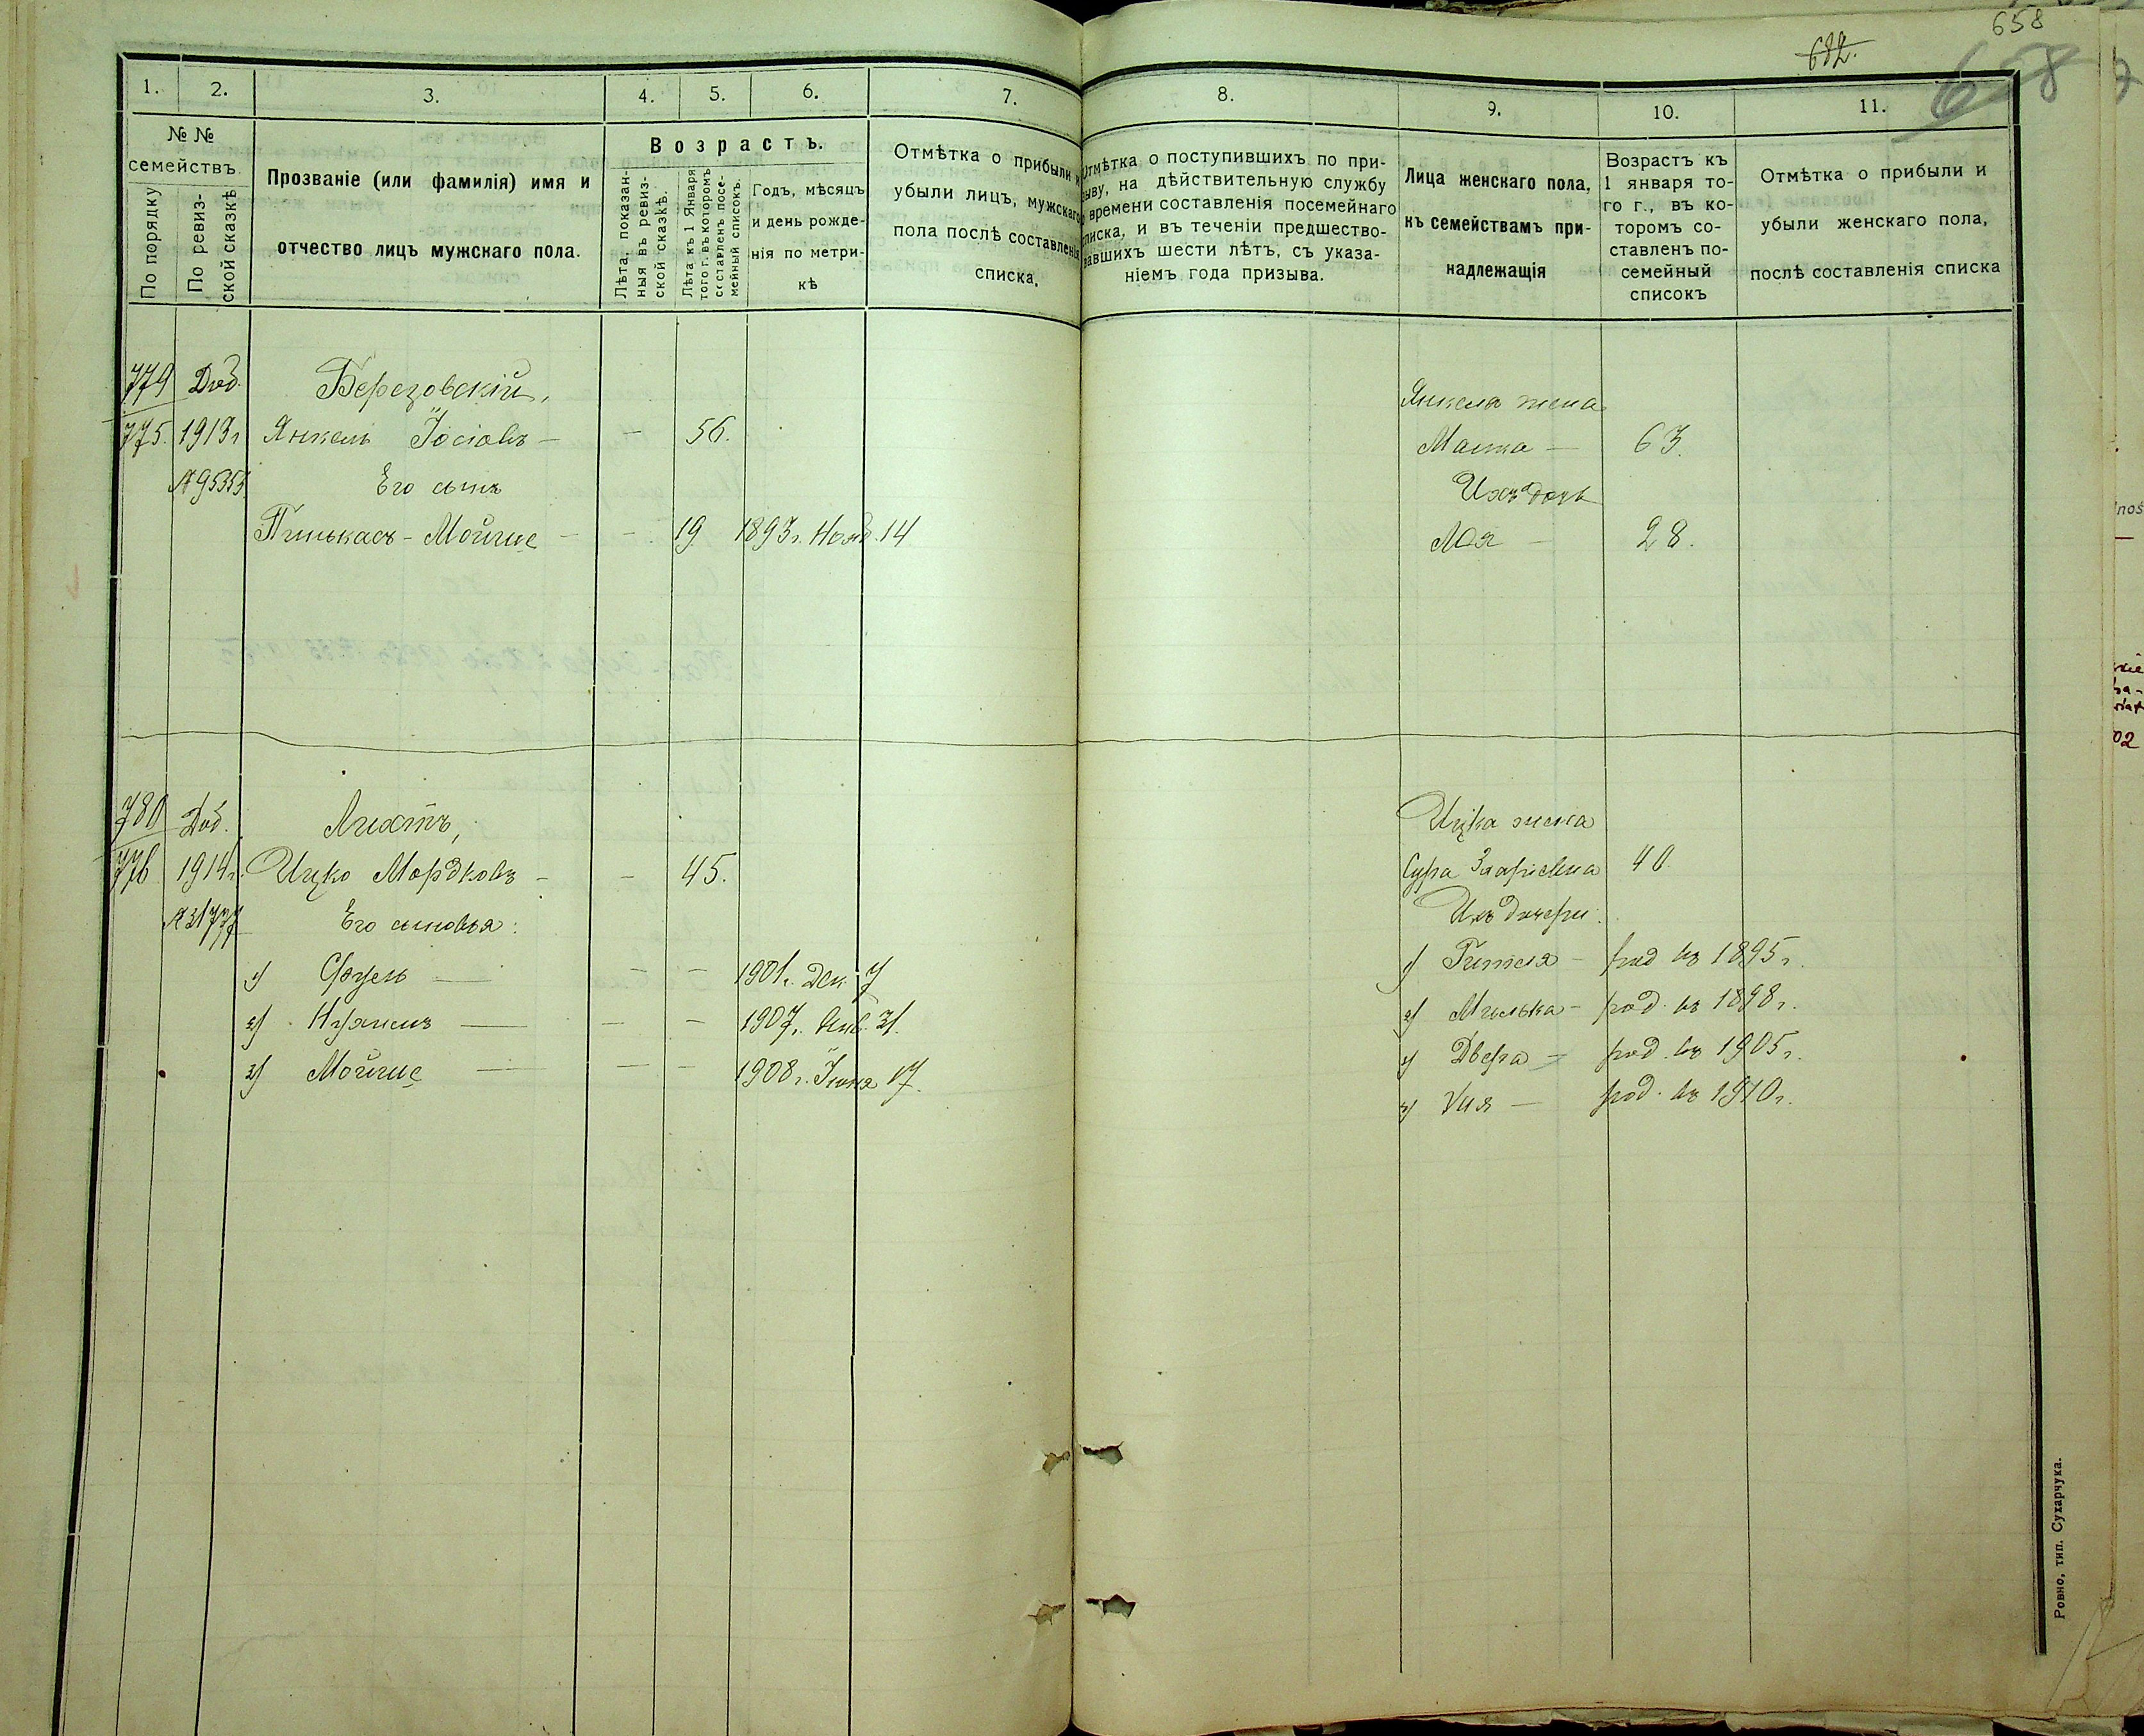 658
682.
658
1.
2.
3.
4.
5.
6.
7.
8.
9.
10.
11.
№ №
семействъ.
По порядку
По ревиз-
ской сказкѣ
Прозваніе (или фамилія) имя и
отчество лицъ мужскаго пола.
Возрастъ.
Лѣта, показан-
ныя въ ревиз-
ской сказкѣ.
Лѣта къ 1 Января
того г. въ которомъ
составленъ посе-
мейный списокъ.
Годъ, мѣсяцъ
и день рожде-
нія по метри-
кѣ
Отмѣтка о прибыли и
убыли лицъ, мужскаго
пола послѣ составленія
списка.
Отмѣтка о поступившихъ по при-
зыву, на дѣйствительную службу
времени составленія посемейнаго
списка, и въ теченіи предшество-
вавшихъ шести лѣтъ, съ указа-
ніемъ года призыва.
Лица женскаго пола,
къ семействамъ при-
надлежащія
Возрастъ къ
1 января то-
го г., въ ко-
торомъ со-
ставленъ по-
семейный
списокъ
Отмѣтка о прибыли и
убыли женскаго пола,
послѣ составленія списка
779 Доб. Березовскій,
Янкеля жена
775. 1913 г. Янкель Іосіовъ — — 56.
Малка — 63.
№ 95353 Его сынъ
Ихъ дочь
Пинькасъ-Мойше — — 19 1893 г. Нояб. 14
28.
780 Доб. Лихтъ,
Ицка жена
776 1914 г. Ицко Мордковъ — — 45.
Сура 40
№ 31777 Его сыновья:
Ихъ дочери:
1) Фроель — — — 1901 г. Дек 7
1) Гителя — род. въ 1895 г.
2) Нухимъ — — — 1907 г. Янв. 31.
2) Милька — род. въ 1898 г.
3) Мойше — — — 1908 г. Іюня 17.
3) Двера — род. въ 1905 г.
род. въ 1910 г.
Ровно, тип. Сухарчука.